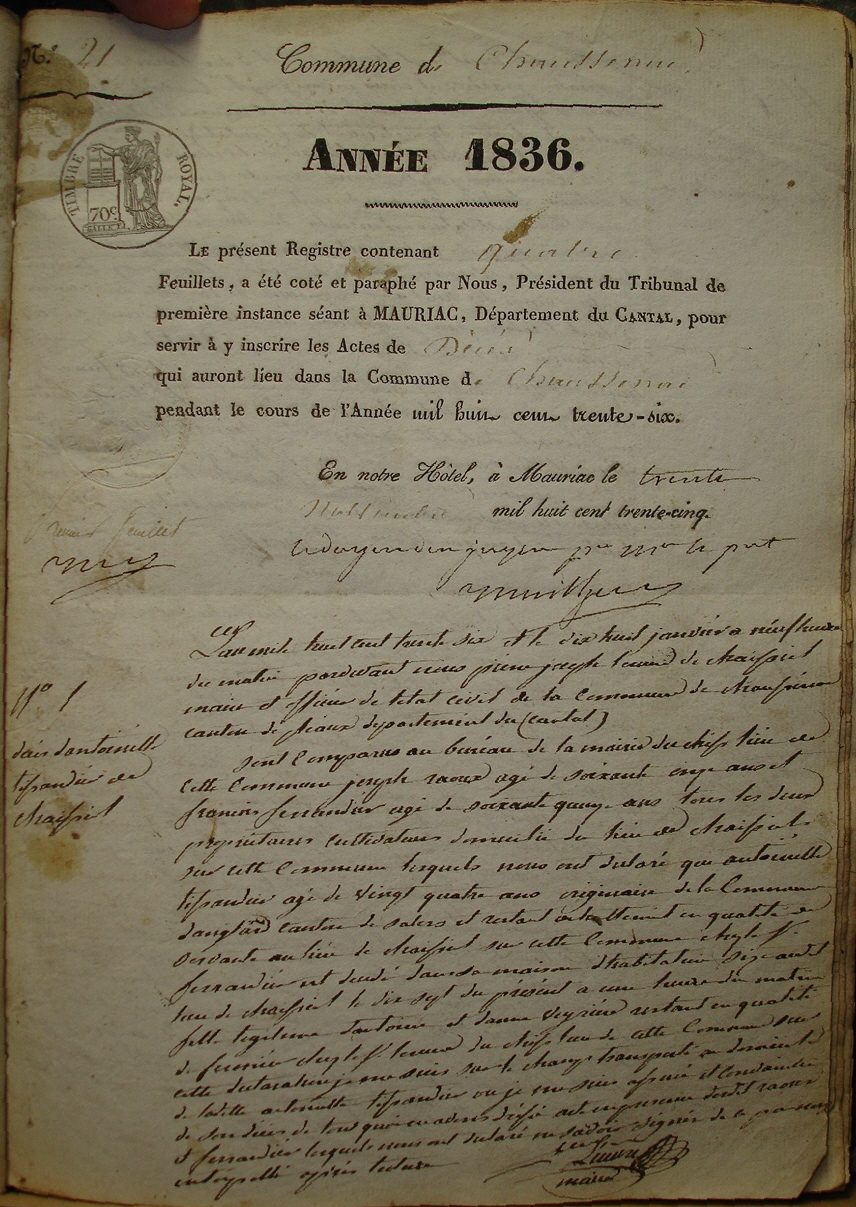 N.º 21
Commune de Chaussenac
ANNÉE 1836.
TIMBRE ROYAL.
70 C
LE présent Registre contenant quatre
Feuillets, a été coté et paraphé par Nous, Président du Tribunal de
première instance séant à MAURIAC, Département du CANTAL, pour
servir à y inscrire les Actes de Décès
qui auront lieu dans la Commune de Chaussenac
pendant le cours de l'Année mil huit cent trente-six.
En notre Hôtel, à Mauriac le trente
mil huit cent trente-cinq.
premier feuillet
le doyen des juges pr Mr le pt
L'an mile huit cent trente six et le dix huit janvier a neuf heures
du matin pardevant nous pierre joseph de chaissiol
maire et officier de letat civil de la Commune de chaussenac
canton de pleaux departement du (cantal)
nº 1
deces dantoinette
tissandier de
chaissiol
sont Comparus au bureau de la mairie du chef lieu de
cette Commune joseph raoux agé de soixante onze ans et
francois ferrandier agé de soixante quinze ans tous les deux
propriétaires cultivateurs domicilié du lieu de chaissiol
sur cette Commune lesquels nous ont declaré que antoinette
tissandier agé de vingt quatre ans originaire de la Commune
danglard canton de salers et restant actuellement en qualité de
servante au lieu de chaissiol sur cette Commune chez le Sr
ferrandier est decedé dans sa maison dhabitation size audit
lieu de chaissiol le dix sept du présent a une heure du matin
fille legitime dantoine et danne veyssiere restant en qualité
de fermier chez le Sr du chef lieu de cette Commune sur
cette declaration je me suis sur le champ transporté au domicile
de ladite antoinette tissandier ou je me suis assuré et Convaincu
de son deces de tout quoi avons dréssé acte en presence dudit raoux
et ferrandier lesquels nous ont declaré ne savoir signer de ce par nous
interpellé aprés lecture
maire